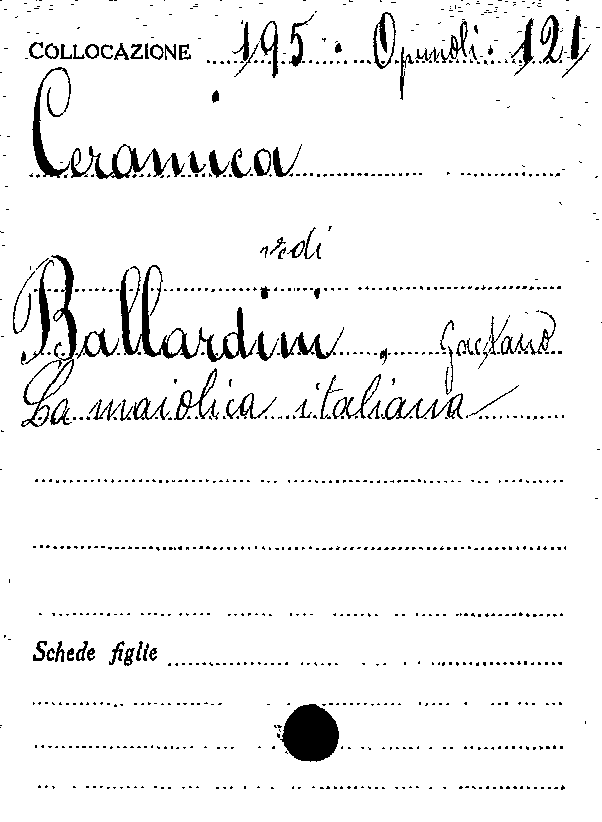 COLLOCAZIONE 195. Opuscoli. 121
Ceramica
vedi
Ballardini, Gaetano
La maiolica italiana
Schede figlie